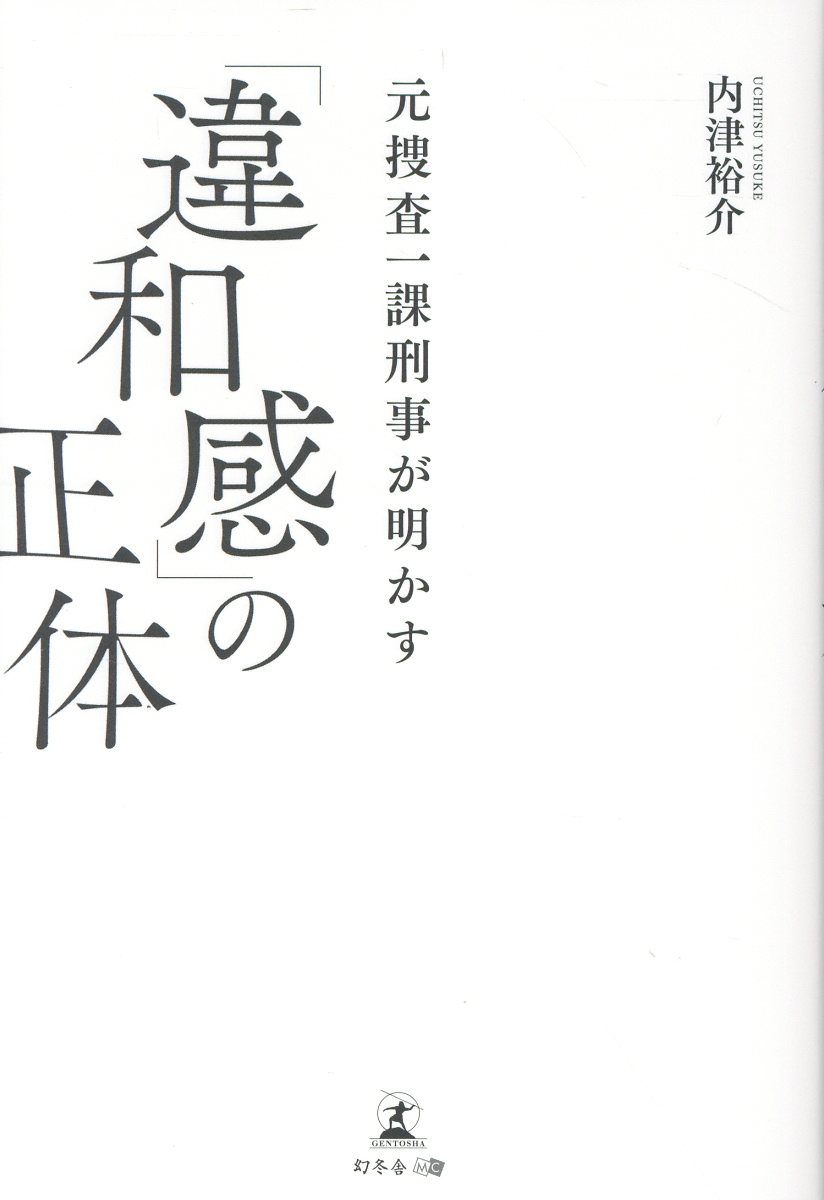 内津裕介
UCHITSU YUSUKE
元捜査一課刑事が明かす
「違和感」の
正体
GENTOSHA
幻冬舎 MC